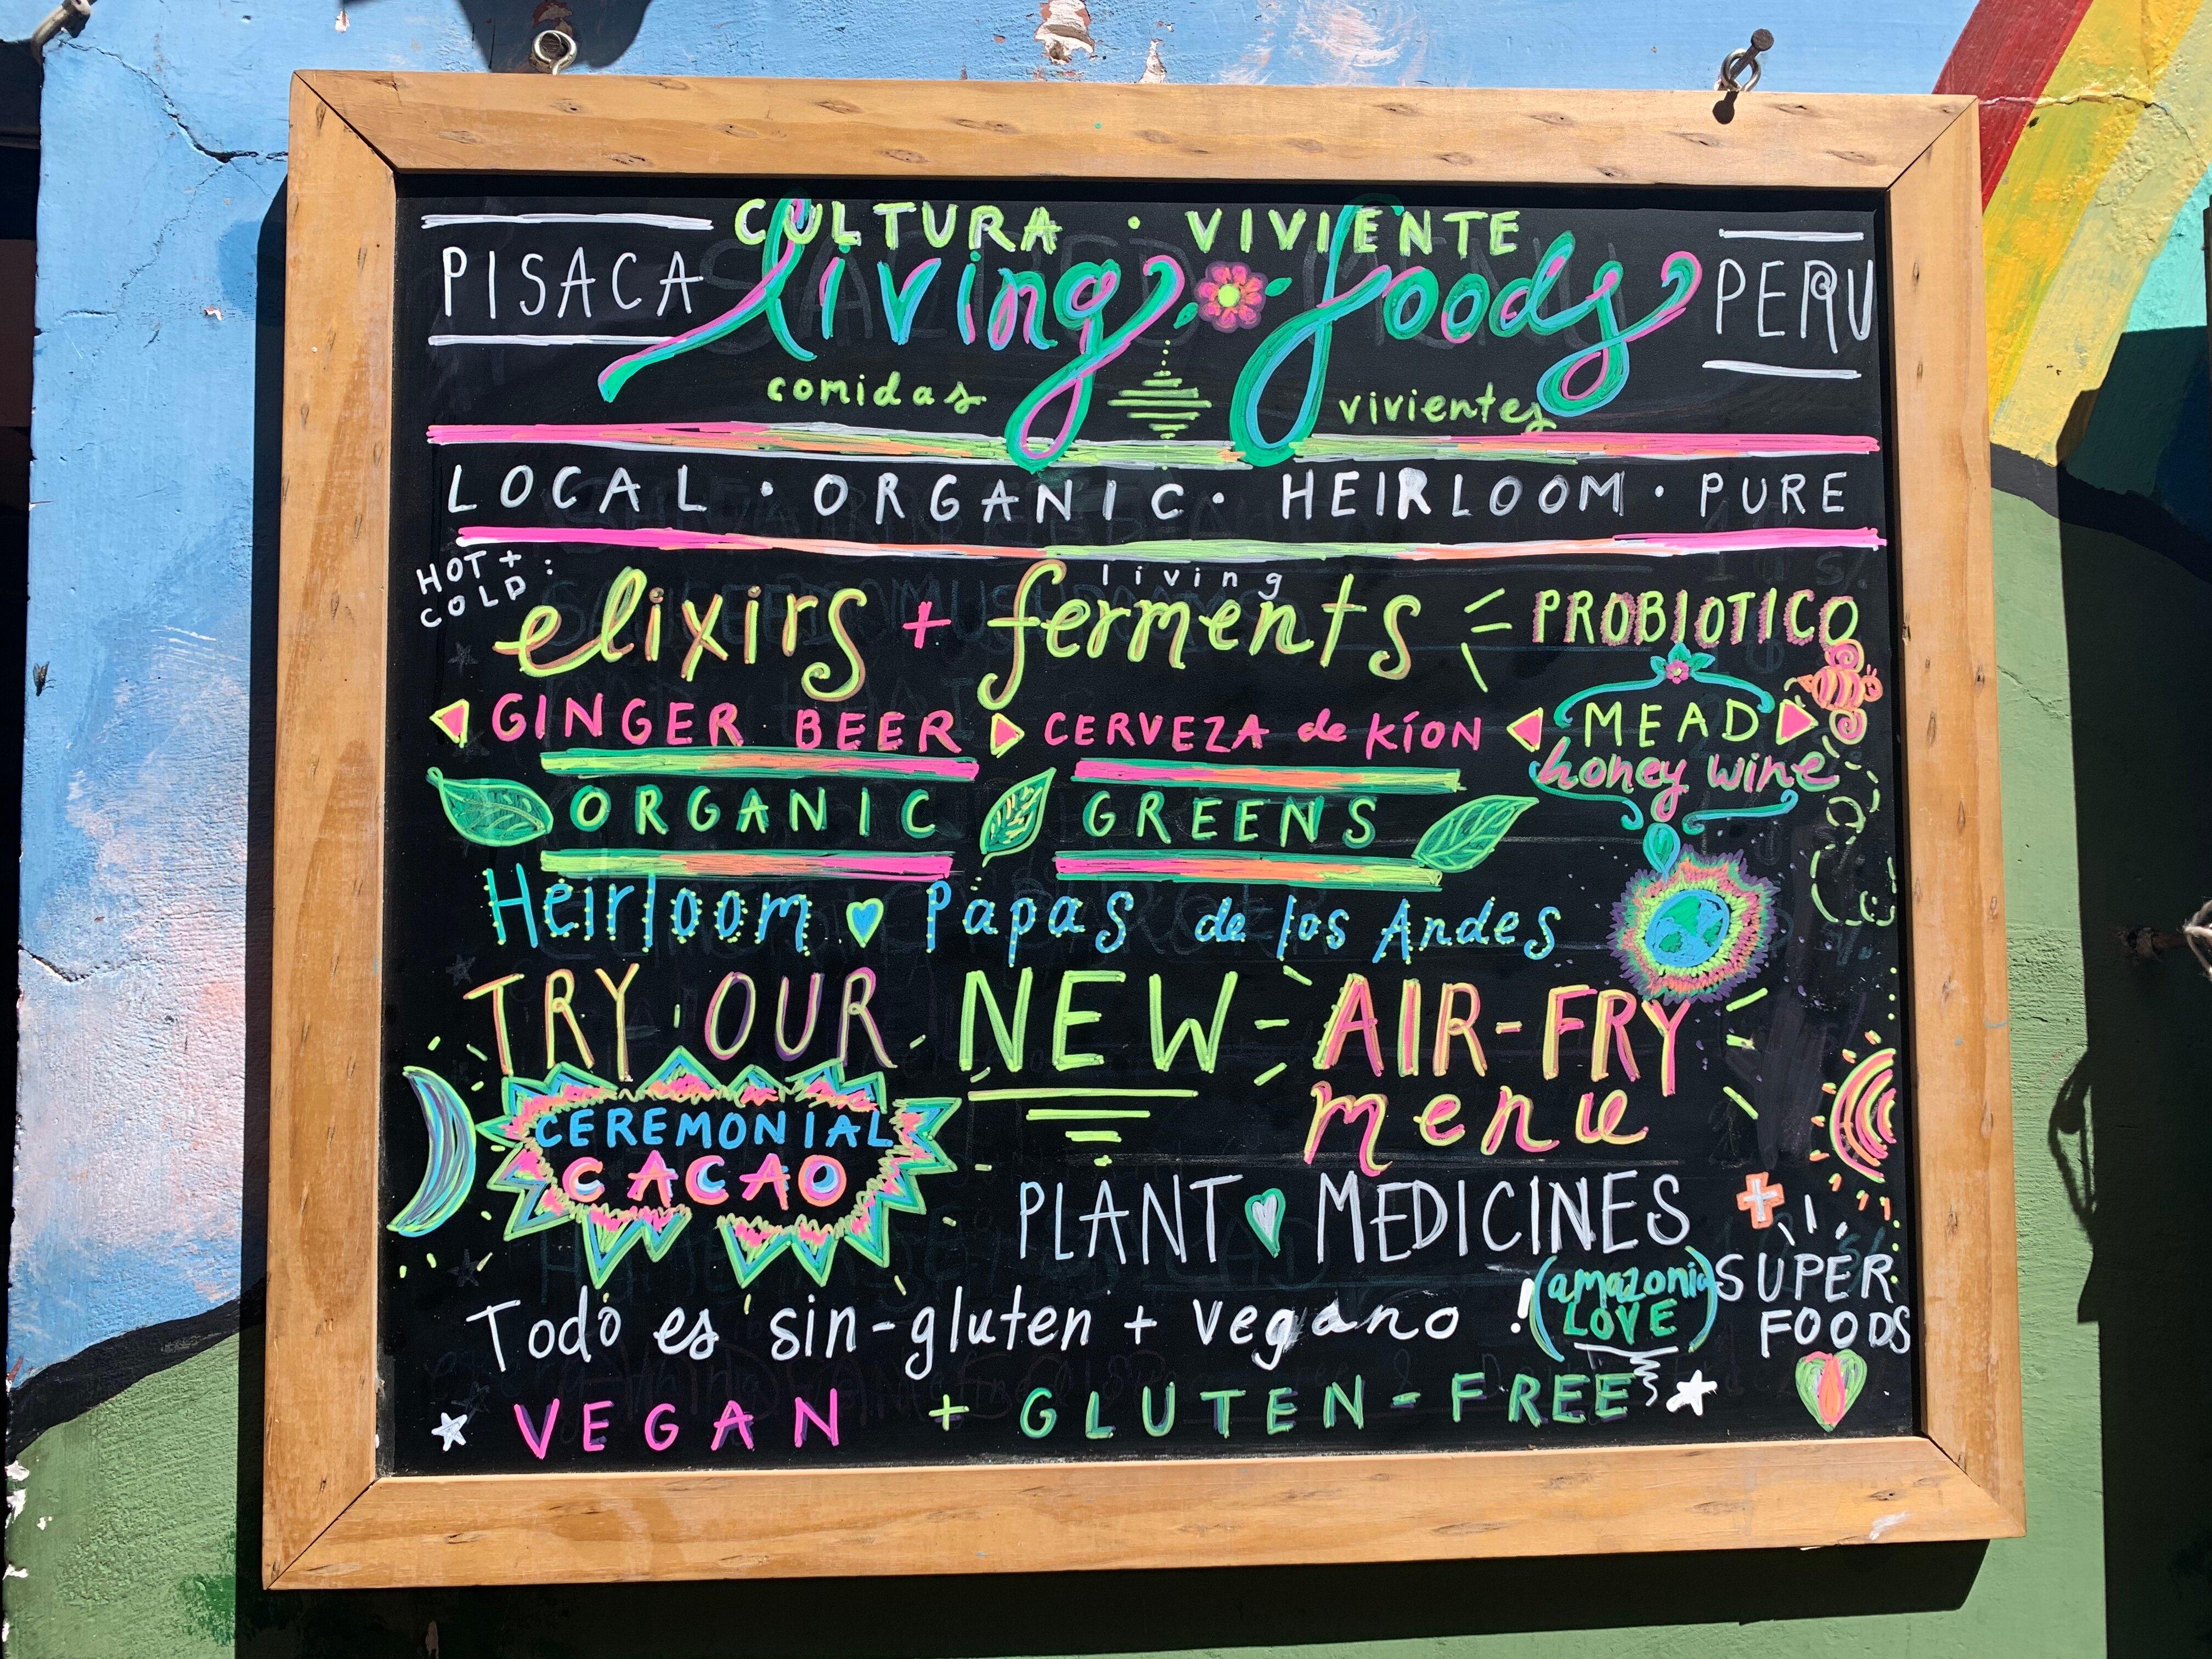 CULTURA · VIVIENTE
PISACA living foods PERU
comidas vivientes
LOCAL · ORGANIC · HEIRLOOM · PURE
HOT +
COLD :
living
elixirs + ferments PROBIOTICO
GINGER BEER CERVEZA de KÍON MEAD
honey wine
ORGANIC GREENS
Heirloom Papas de los Andes
TRY OUR NEW AIR-FRY
menu
CEREMONIAL
CACAO
PLANT MEDICINES +
Todo es sin-gluten + vegano !
(amazonia
LOVE)
SUPER
FOODS
VEGAN + GLUTEN-FREE